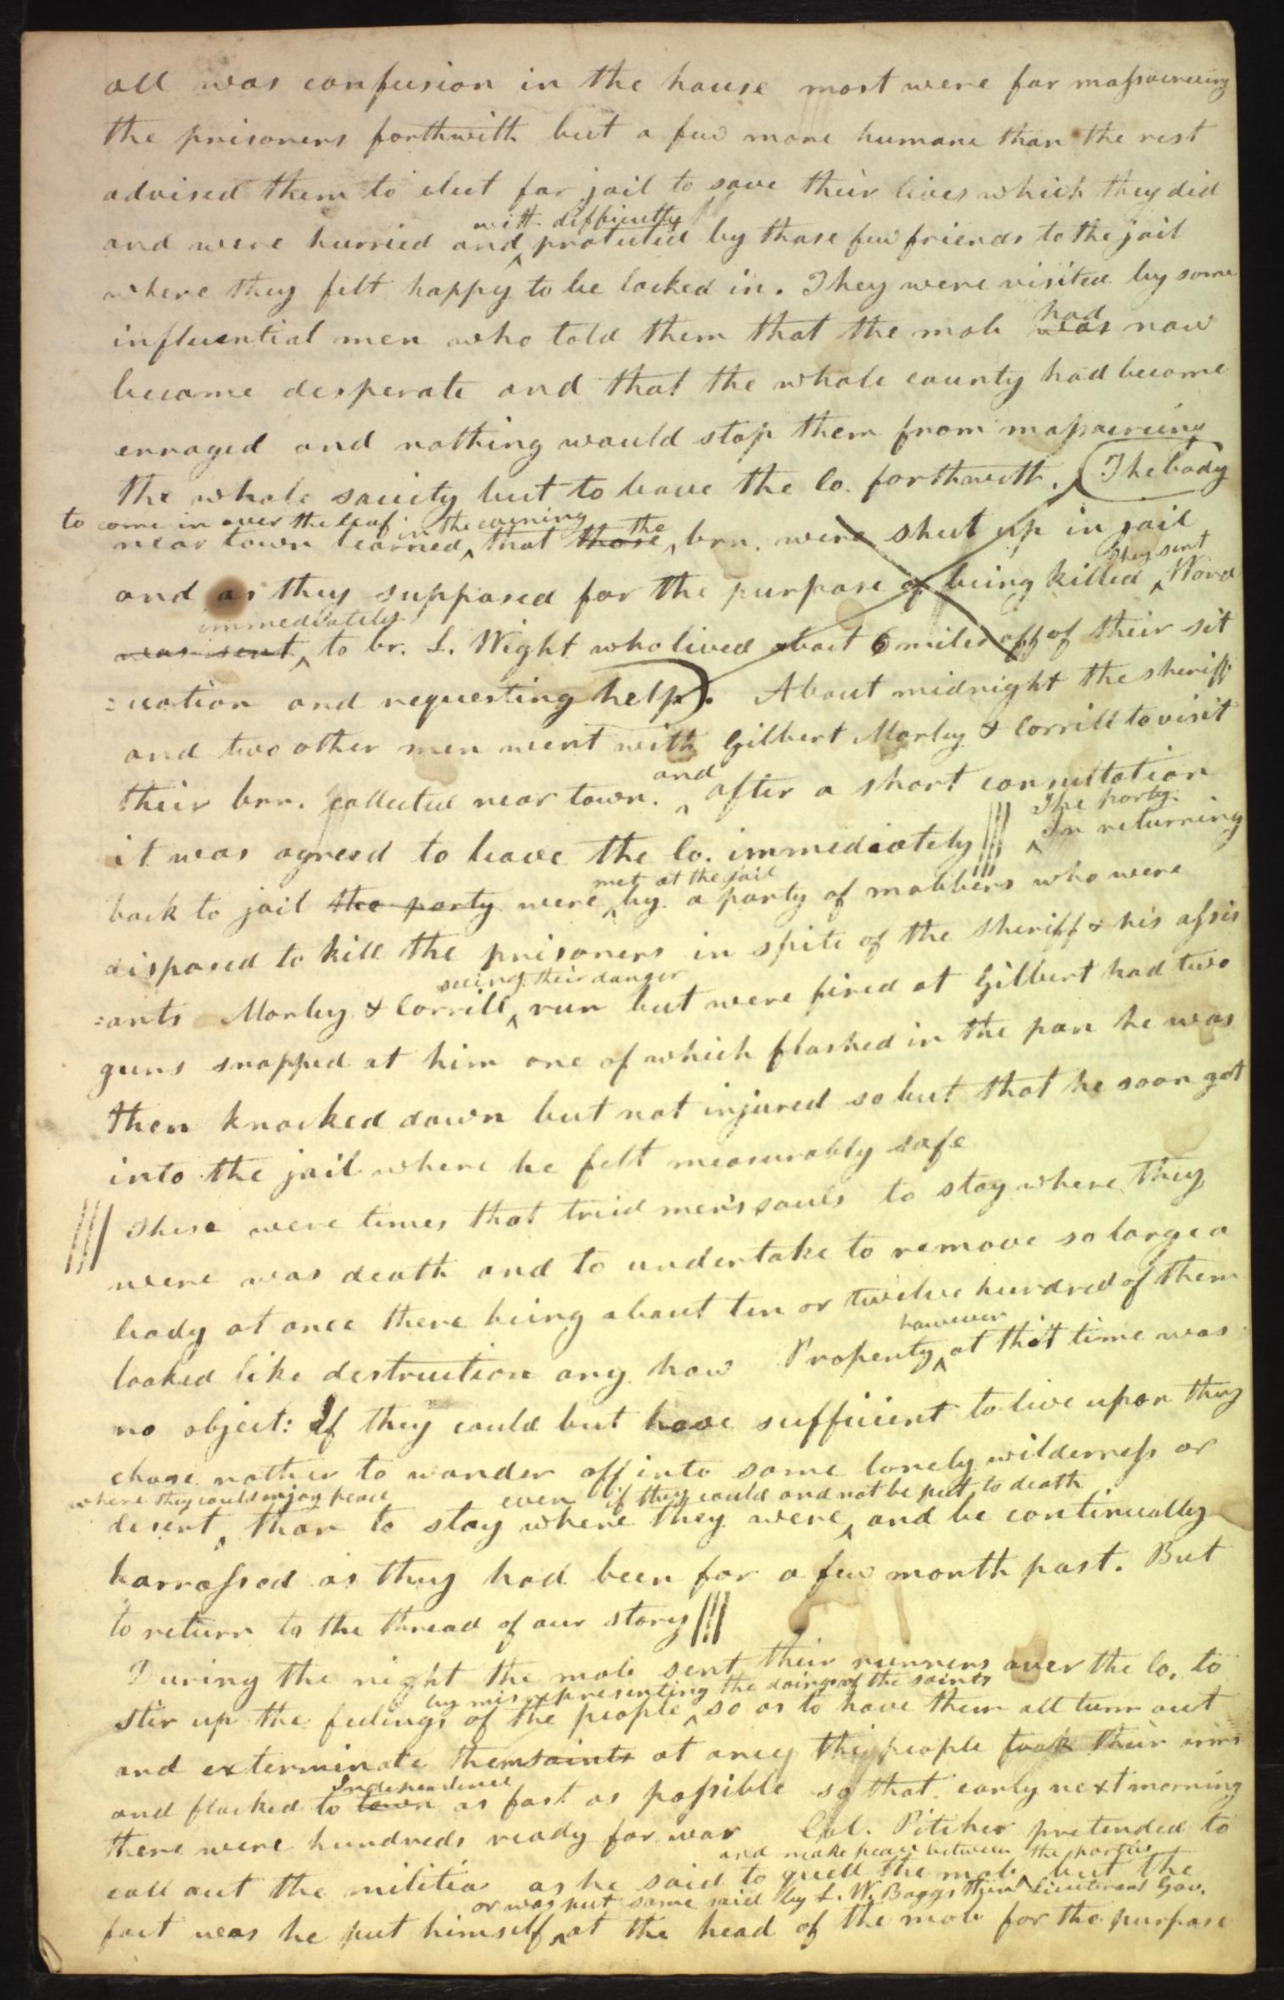 all was confusion in the house most were for massacreeing
the prisoners forthwith but a few more humane than the rest
advised them to elect for jail to save their lives which they did
with difficulty
and were hurried and protected by those few friends to the jail
where they felt happy to be locked in. They were visited by some
had
influential men who told them that the mob was now
become desperate and that the whole county had become
enraged and nothing would stop them from massacreing
the whole society but to leave the Co. forthwith. The body
to come in over the leaf in the evening the
near town learned that those brn. were shut up in jail
They sent
and as they supposed for the purpose of being killed Word
immediately
was sent to br. L. Wight who lived about 6 miles off of their sit
=uation and requesting help. About midnight the sheriff
and two other men went with Gilbert Morley & Corrill to visit
and
their brn. collected near town. after a short consultation
The party
it was agreed to leave the Co. immediately In returning
met at the jail
back to jail the party were by a party of mobbers who were
disposed to kill the prisoners in spite of the sheriff & his assis
seeing their danger
=ants Morley & Corrill run but were fired at Gilbert had two
guns snapped at him one of which flashed in the pan he was
then knocked down but not injured so but that he soon got
into the jail where he felt measurably safe
These were times that tried men's souls to stay where they
were was death and to undertake to remove so large a
body at once there being about ten or twelve hundred of them
however
looked like destruction any how Property at that time was
no object: If they could but have sufficient to live upon they
chose rather to wander off into some lonely wilderness or
where they could enjoy peace even if they could and not be put to death
desert than to stay where they were and be continually
harrassed as they had been for a few month past. But
to return to the thread of our story
During the night the mob sent their runners over the Co. to
by misrepresenting the doings of the saints
stir up the feelings of the people so as to have them all turn out
and exterminate them saints at once the people took their arms
Independence
and flocked to town as fast as possible so that early next morning
there were hundreds ready for war Col. Pitcher pretended to
and make peace between the parties
call out the militia as he said to quell the mob but the
or was put some said by L. W. Boggs then Lieutenant Gov.
fact was he put himself at the head of the mob for the purpose